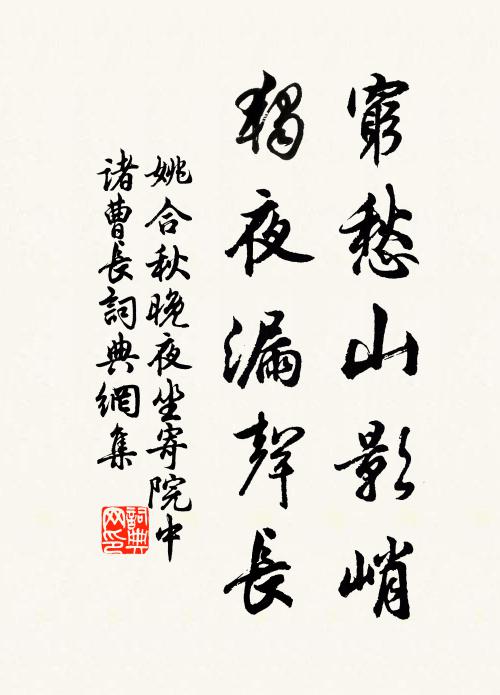 窮愁山影峭
獨夜漏聲長
姚合秋晚夜坐寄院中
諸曹長詞典網集
詞典
网印